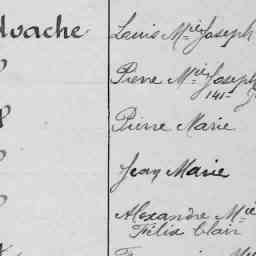 Louis Mie Joseph
Pierre Mie Joseph
141
Pierre Marie
Jean Marie
Alexandre Mie
Félix